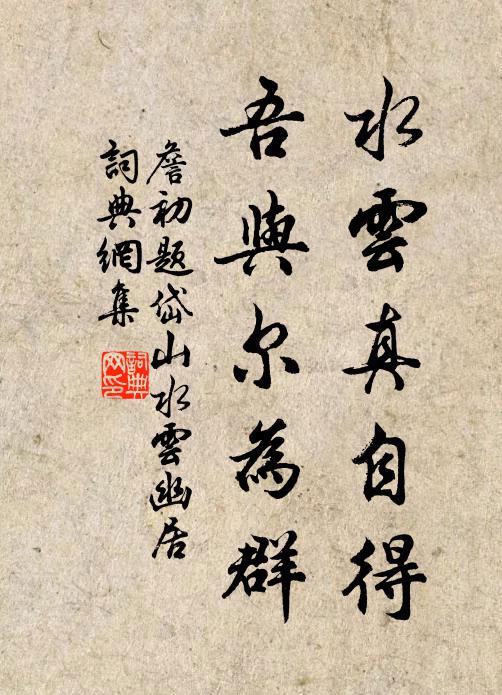 水雲真自得
吾與尔為群
詹初題岱山水雲幽居
詞典網集
詞典
网印